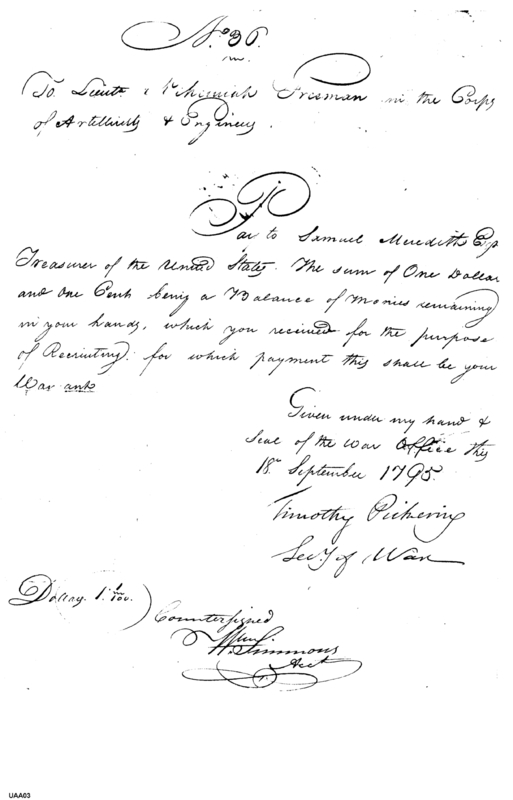 No. 36.
To Lieut. Nehemiah Freeman in the Corps
of Artillerists & Engineers.
Pay to Samuel Meredith Esqr
Treasurer of the United States. The sum of One Dollar
and One Cent being a Balance of Monies remaining
in your hands, which you received for the purpose
of Recruiting: for which payment this shall be your
War ant
Given under my hand &
Seal of the War Office this
18th September 1795.
Timothy Pickering
Secy of War
Dollars. 1. 1/100.
Countersigned
Wm. Simmons
Acct
UAA03